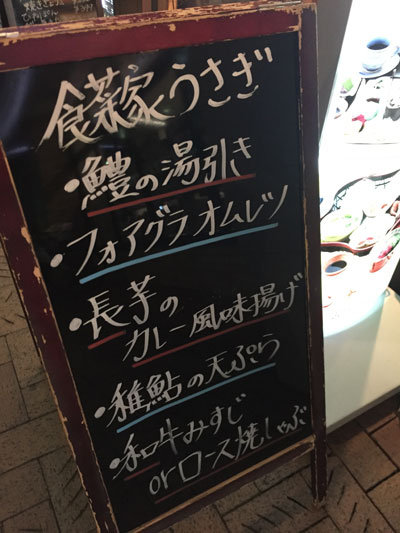 食菜家うさぎ
・鱧の湯引き
・フォアグラオムレツ
・長芋の
カレー風味揚げ
・稚鮎の天ぷら
・和牛みすじ
orロース焼しゃぶ